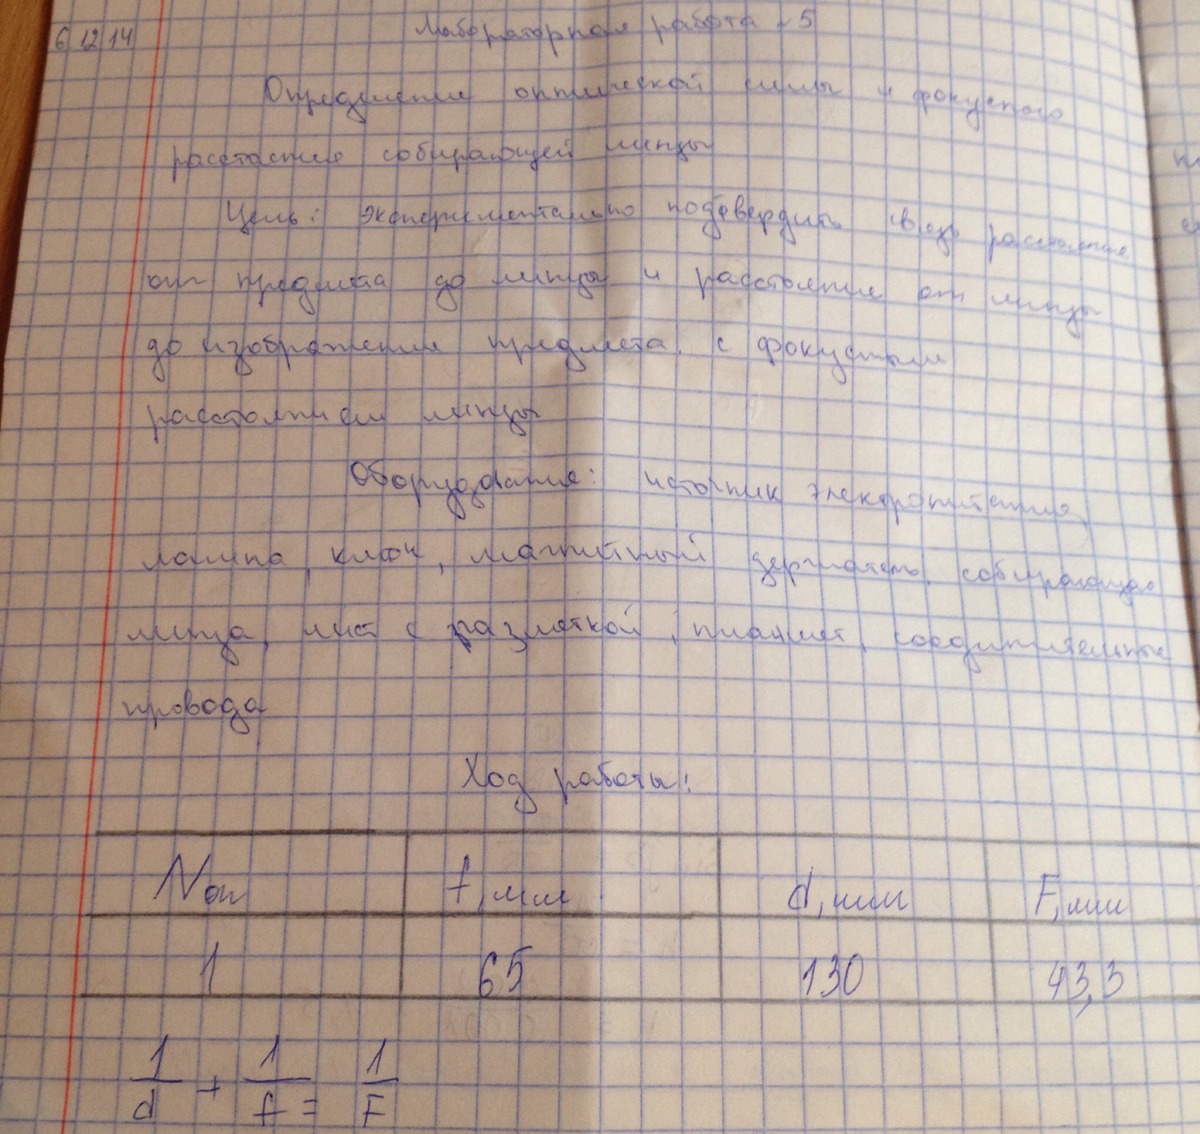 6 12 14
Лабораторная работа ~5
Определение оптической силы и фокусного
расстояния собирающей линзы
Цель: экспериментально подтвердить связь расстояния
от предмета до линзы и расстояния от линзы
до изображения предмета с фокусным
расстоянием линзы
Оборудование: источник электропитания,
лампа, ключ, магнитный держатель, собирающая
линза, лист с разметкой, планшет, соединительные
провода
Ход работы:
Nоп f, мм d, мм F, мм
1 65 130 43,3
1/d + 1/f = 1/F